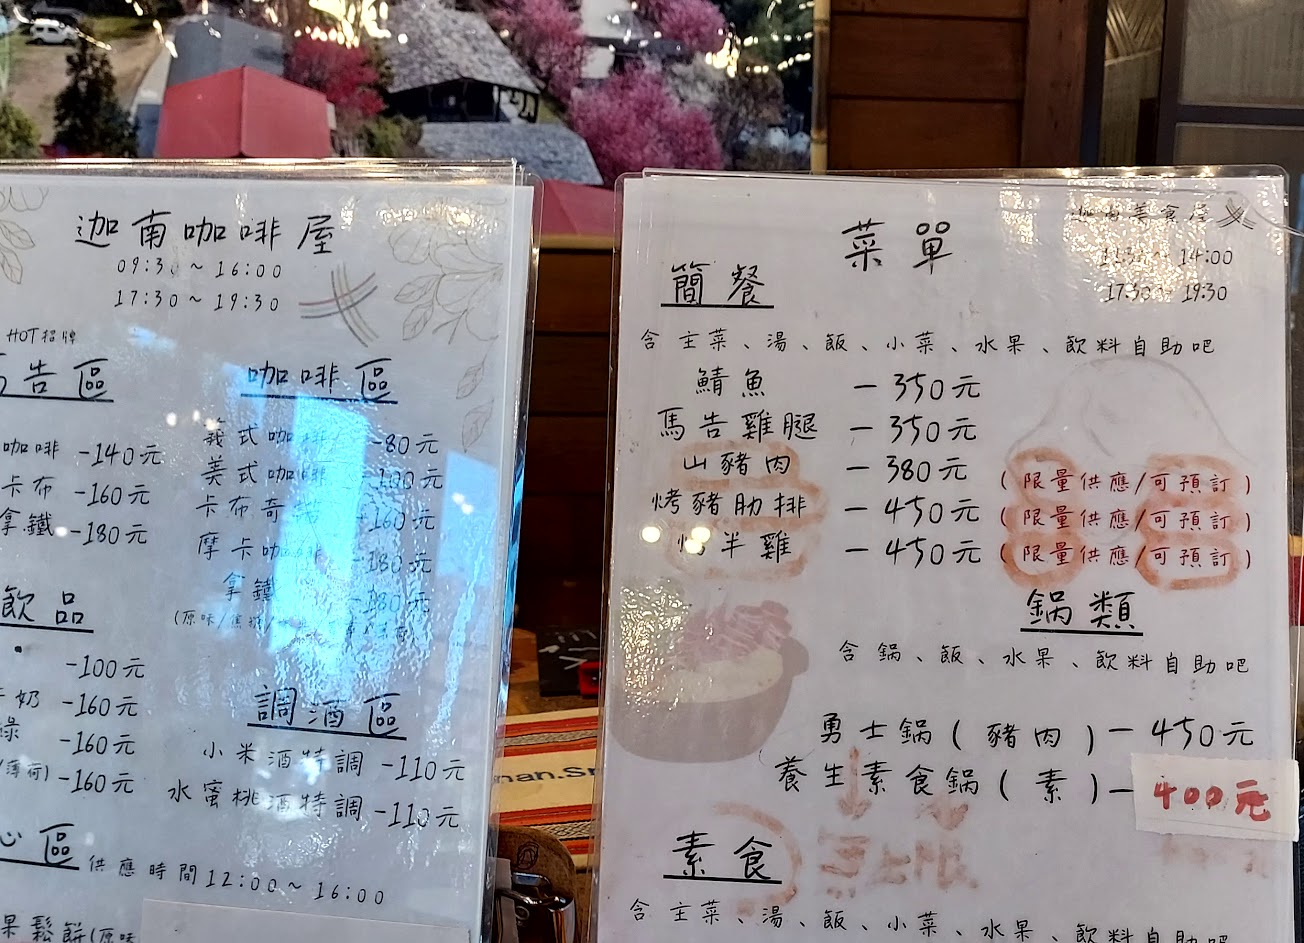 迦南咖啡屋
09:30~16:00
17:30~19:30
HOT招牌
告區
咖啡 -140元
卡布 -160元
拿鐵 -180元
飲品
-100元
奶 -160元
綠 -160元
薄荷) -160元
心區 供應時間12:00~16:00
果鬆餅(原味
咖啡區
義式咖啡 -80元
美式咖啡 -100元
卡布奇諾 -160元
摩卡咖啡 -180元
拿鐵 -180元
(原味/焦糖/
調酒區
小米酒特調 -110元
水蜜桃酒特調 -110元
菜單
美食屋
11:30~14:00
17:30~19:30
簡餐
含主菜、湯、飯、小菜、水果、飲料自助吧
鯖魚 -350元
馬告雞腿 -350元
山豬肉 -380元 (限量供應/可預訂)
烤豬肋排 -450元 (限量供應/可預訂)
烤半雞 -450元 (限量供應/可預訂)
鍋類
含鍋、飯、水果、飲料自助吧
勇士鍋(豬肉)-450元
養生素食鍋(素)-400元
素食
含主菜、湯、飯、小菜、水果、飲料自助吧